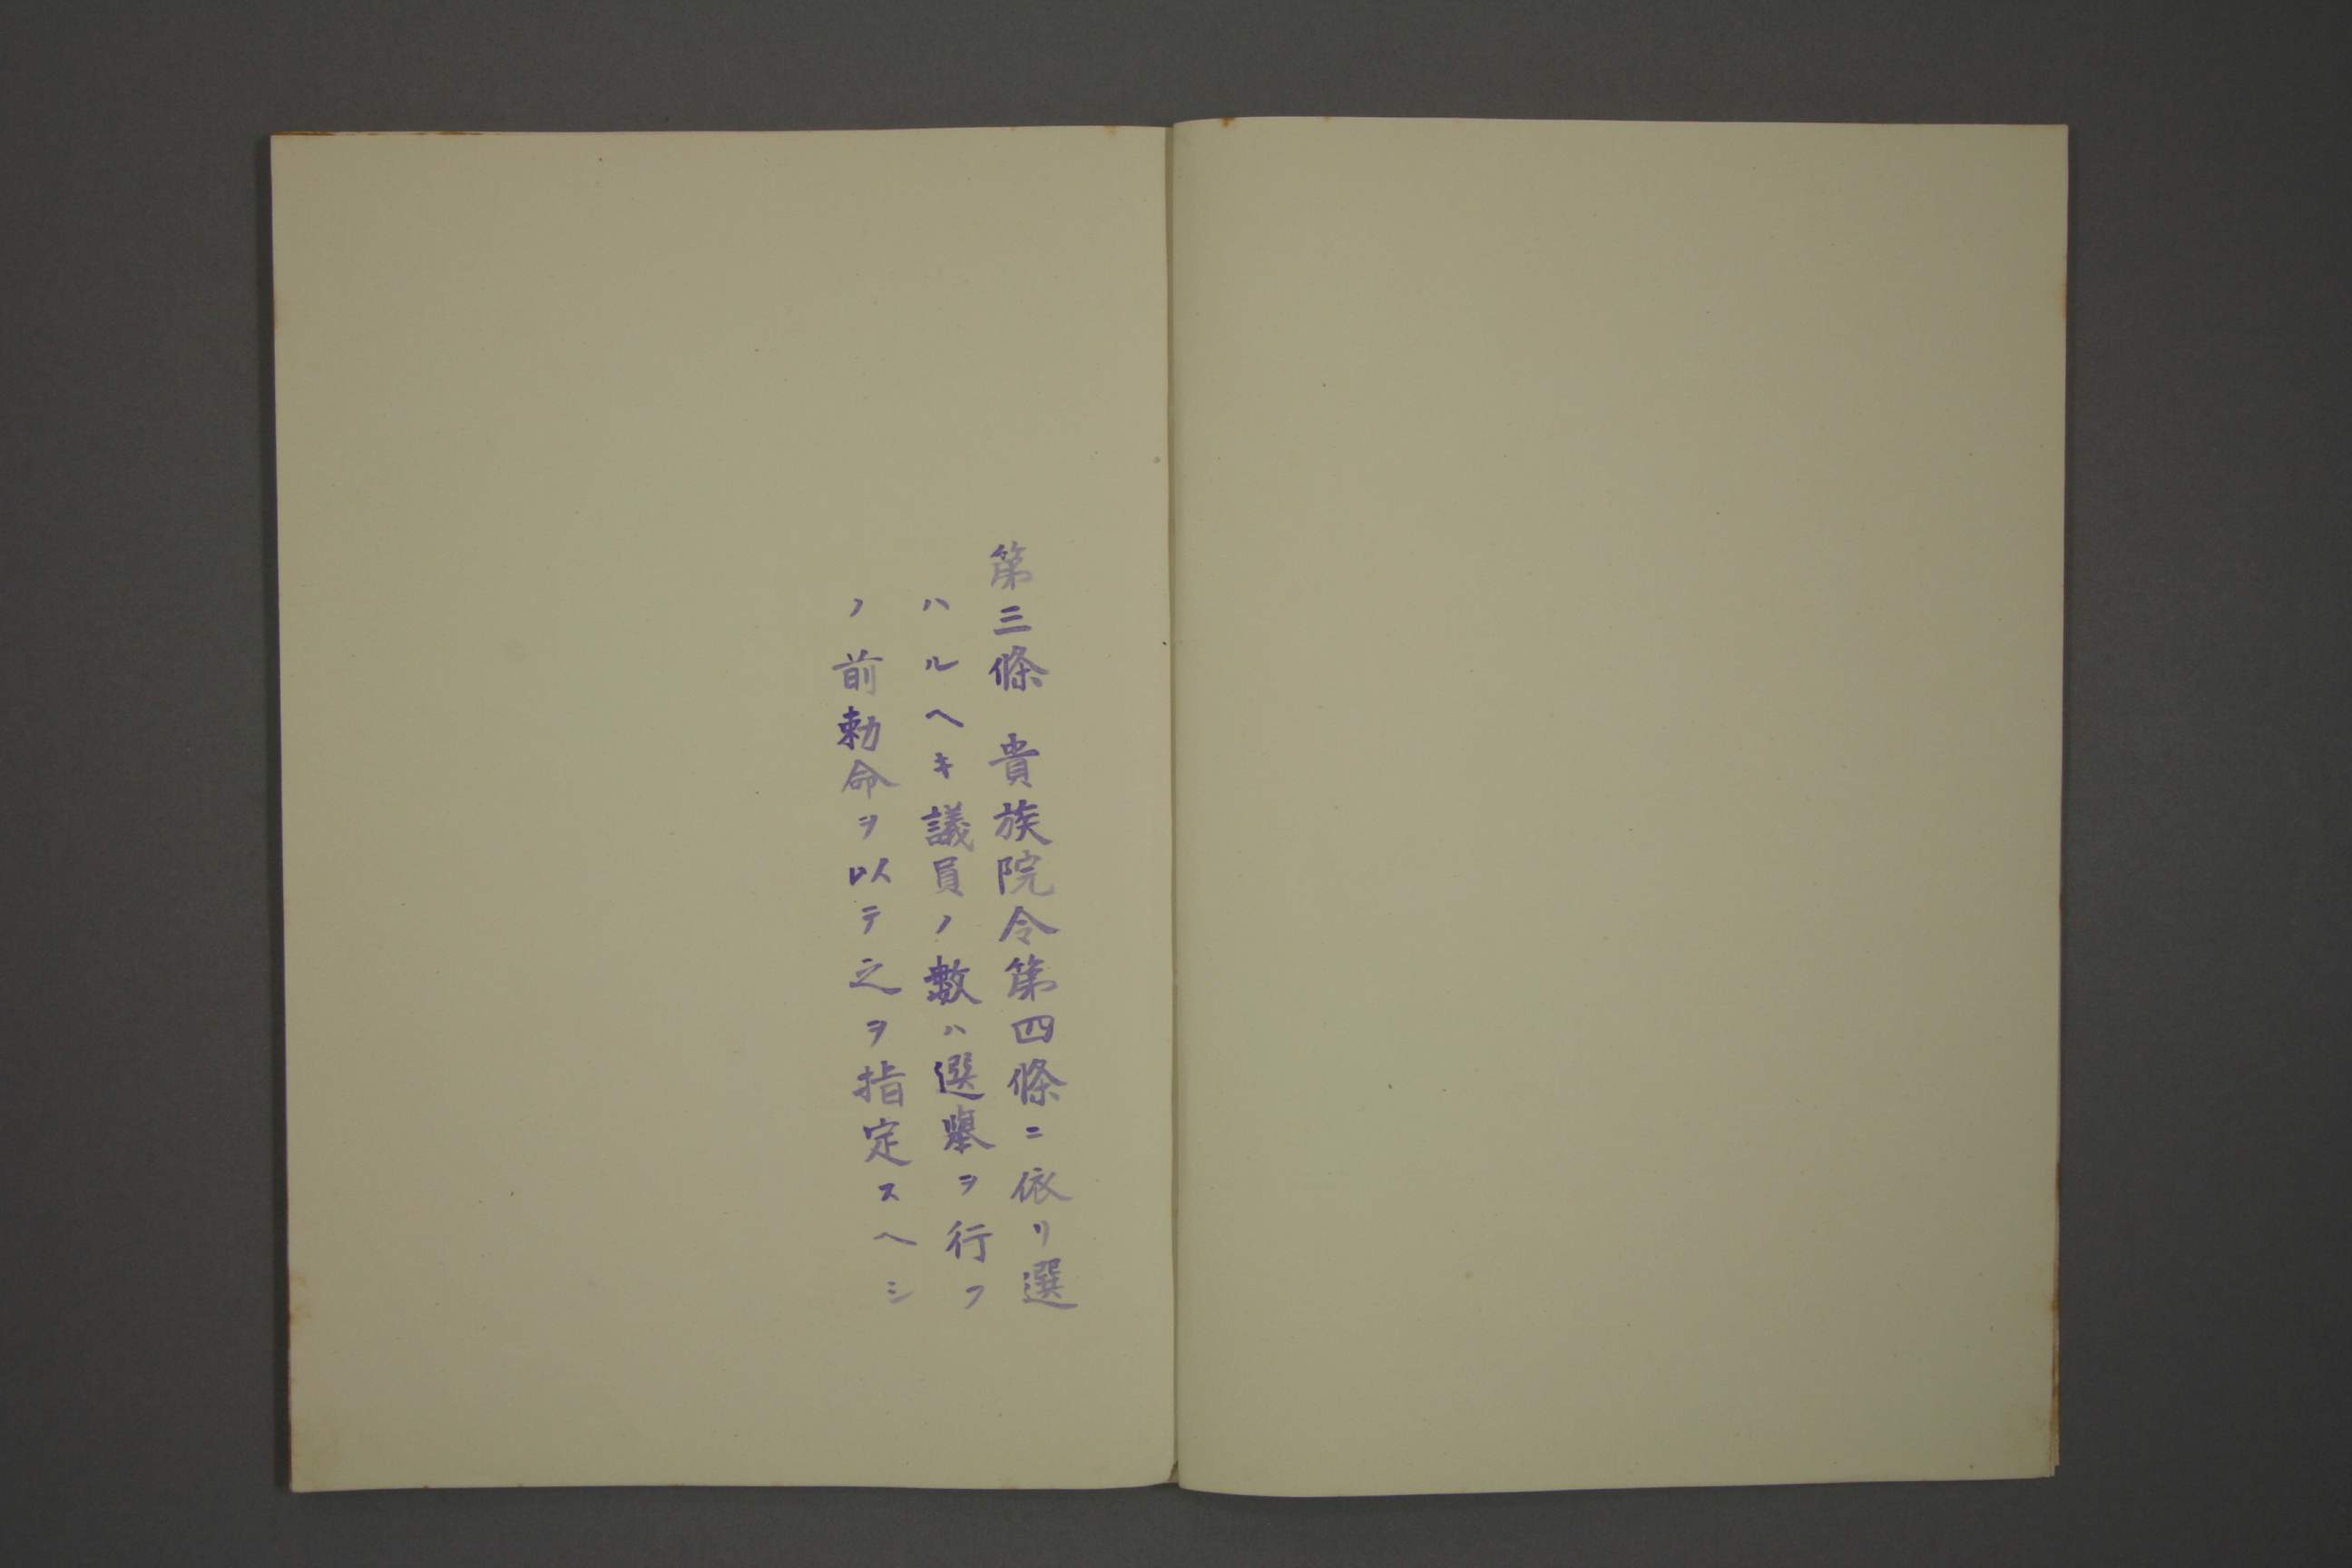 第三條　貴族院令第四條ニ依リ選
ハルヘキ議員ノ數ハ選擧ヲ行フ
ノ前勅命ヲ以テ之ヲ指定スヘシ